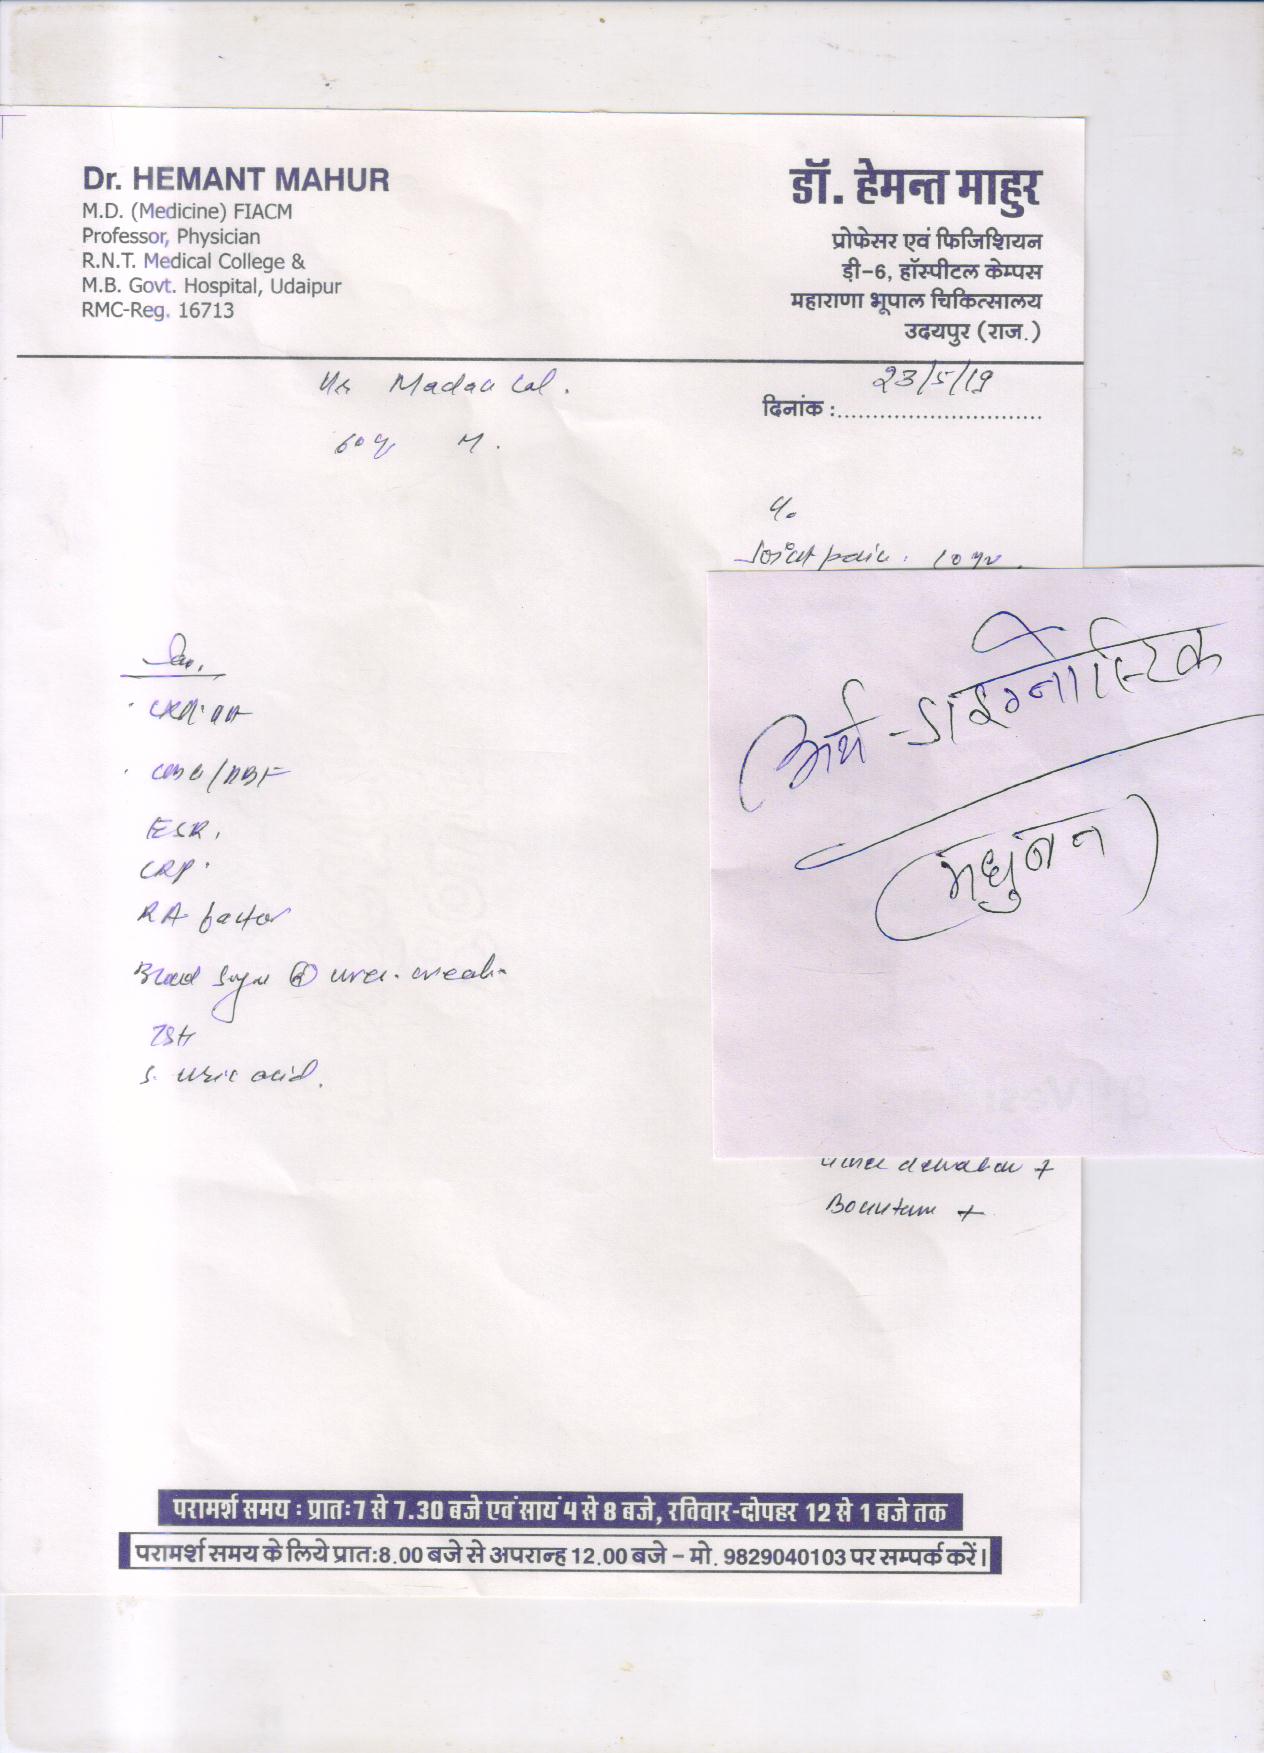 Dr. HEMANT MAHUR
M.D. (Medicine) FIACM
Professor, Physician
R.N.T. Medical College &
M.B. Govt. Hospital, Udaipur
RMC-Reg. 16713
डॉ. हेमन्त माहुर
प्रोफेसर एवं फिजिशियन
ड़ी-6, हॉस्पीटल केम्पस
महाराणा भूपाल चिकित्सालय
उदयपुर (राज.)
Madan Lal.
23/5/19
दिनांक :
60 y M.
Joint pain. 10 yr
ESR,
CRP
RA factor
Blood Sugar urea. creat
TSH
S. Uric acid.
अर्थ - डाइग्नोस्टिक
(मधुबन)
+
+
परामर्श समय : प्रातः 7 से 7.30 बजे एवं सायं 4 से 8 बजे, रविवार-दोपहर 12 से 1 बजे तक
परामर्श समय के लिये प्रात:8.00 बजे से अपरान्ह 12.00 बजे – मो. 9829040103 पर सम्पर्क करें।